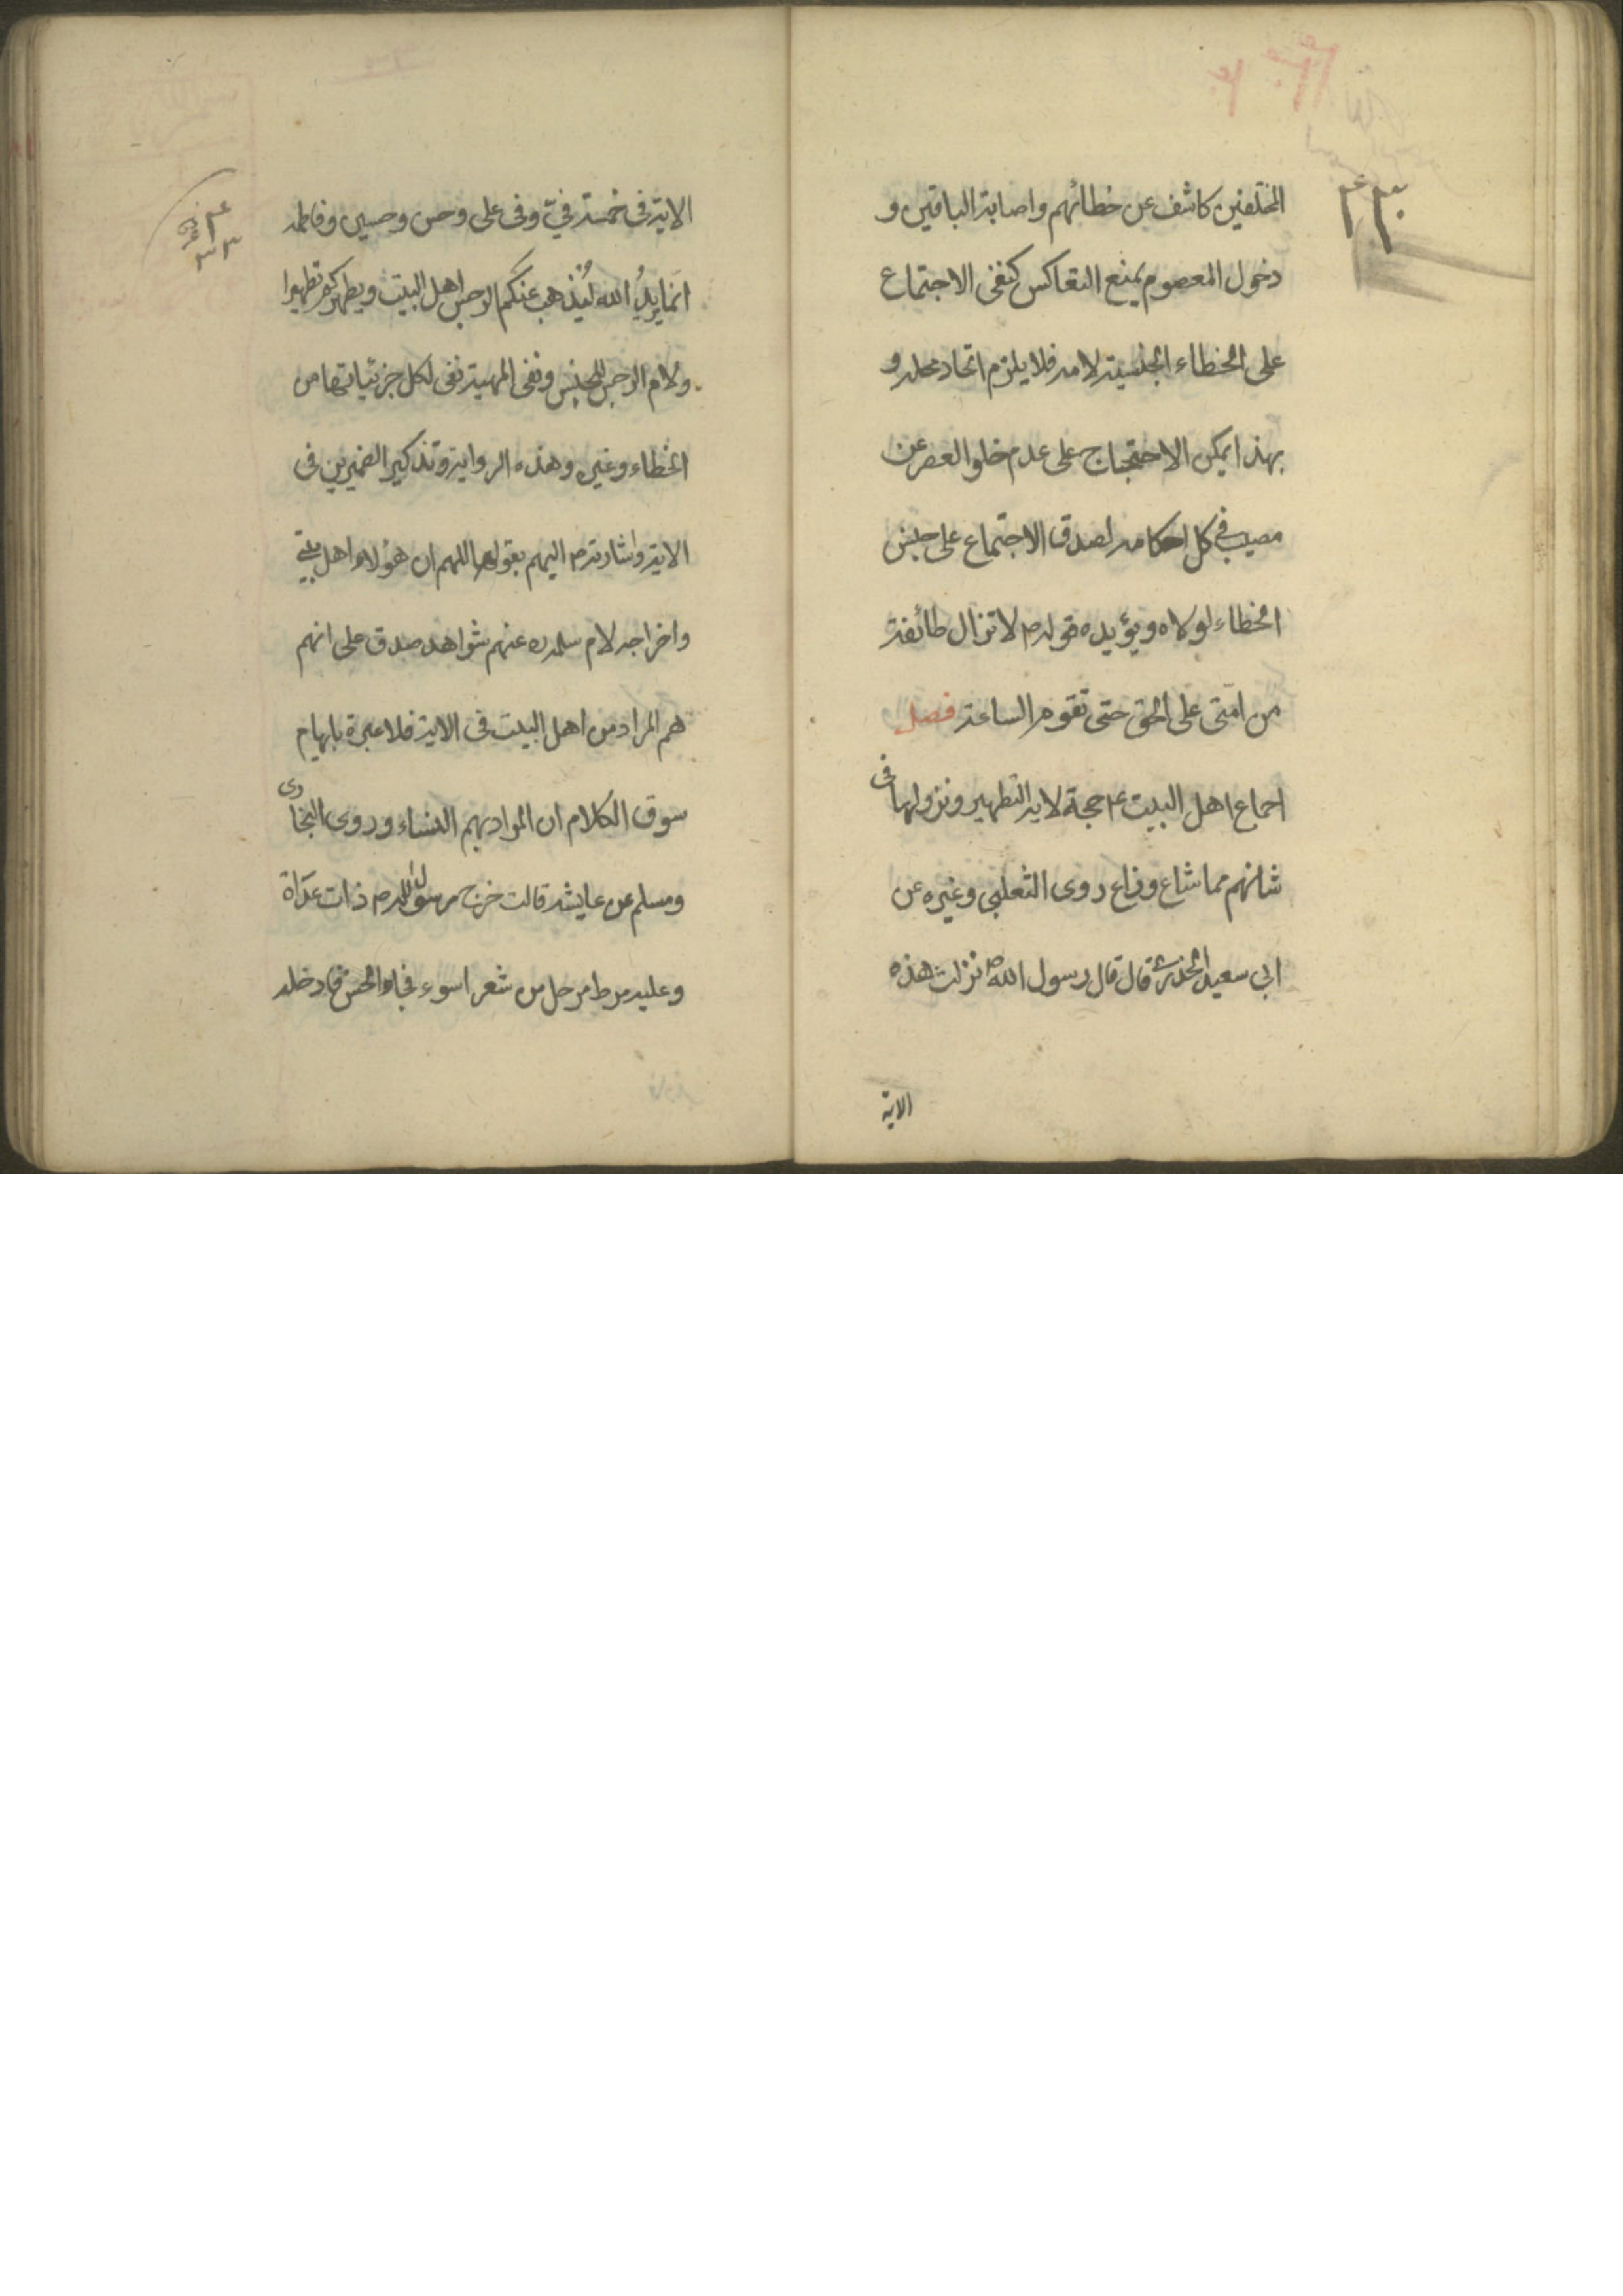 المختلفين كاشف عن خطائهم واصابة الباقين و
دخول المعصوم يمنع التعاكس كنفى الاجتماع
على الخطاء الجنسية لامه فلا يلزم اتحاد محله و
بهذا يمكن الاحتجاج على عدم خلو العصر عن
مصيب في كل احكامه لصدق الاجتماع على جنس
الخطاء لولاه ويؤيده قوله ص لا تزال طائفة
من امتى على الحق حتى تقوم الساعة فصل
اجماع اهل البيت ع حجة لاية التطهير ونزولها فى
شانهم مما شاع وذاع روى الثعلبى وغيره عن
ابى سعيد الخدرى قال قال رسول الله ص نزلت هذه
الاية
الاية فى خمسة فيّ وفى على وحسن وحسين وفاطمه
انما يريدُ الله ليُذهب عنكم الرجس اهل البيت ويطهركم تطهيرا
ولام الرجس للجنس ونفى المهية نفى لكل جزئياتها من
الخطاء وغيره وهذه الرواية وتذكير الضميرين فى
الاية واشارته ص اليهم بقوله اللهم ان هؤلاء اهل بيتى
واخراجه لام سلمه عنهم شواهد صدق على انهم
هم المراد من اهل البيت فى الاية فلا عبرة بابهام
سوق الكلام ان المراد بهم النساء وروى البخارى
ومسلم عن عايشه قالت خرج رسول الله ص ذات غداة
وعليه مرط مرحل من شعر اسود فجاء الحسن فادخله